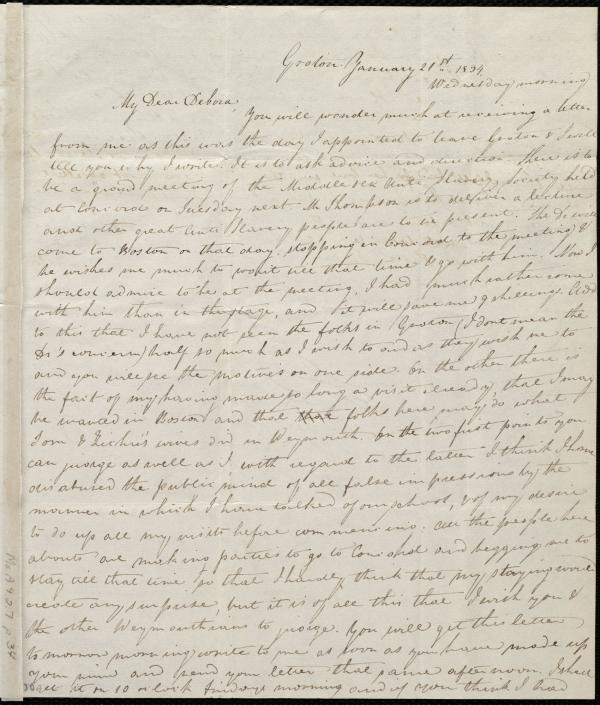 Groton January 21st 1834
Wednesday morning
My Dear Debora,
You will wonder much at receiving a letter
from me as this was the day I appointed to leave Groton & I will
tell you why I write. It is to ask advice and direction. There is to
be a grand meeting of the Middlesex Anti Slavery Society held
at Concord on Tuesday next Mr Thompson is to deliver a lecture
and other great Anti Slavery people are to be present. The Dr will
come to Boston on that day stopping in Concord to the meeting &
he wishes me much to wait till that time & go with him. Now I
should admire to be at the meeting, I had much rather come
with him than in the stage, and it will save me 9 shillings. Add
to this that I have not seen the folks in Groton (I dont mean the
Dr's concern) half so much as I wish to and as they wish me to
and you will see the motives on one side. On the other there is
the fact of my having made so long a visit already, that I may
be wanted in Boston and that folks here may do what
Tom & wives did in Weymouth. On the two first points you
can judge as well as I with regard to the latter I think I have
disabused the public mind of all false impressions by the
manner in which I have talked of our school, & of my desire
to do up all my visits before commencing. All the people here
abouts are making parties to go to Concord and begging me to
stay till that time so that I hardly think that my staying would
create any surprise, but it is of all this that I wish you &
the other Weymouthians to judge. You will get this letter
tomorrow morning write to me as soon as you have made up
your mind and send your letter that same afternoon. I shall
get it on 10 oclock fridays morning and if you think I had
Ms.A.9.2.7 p.34